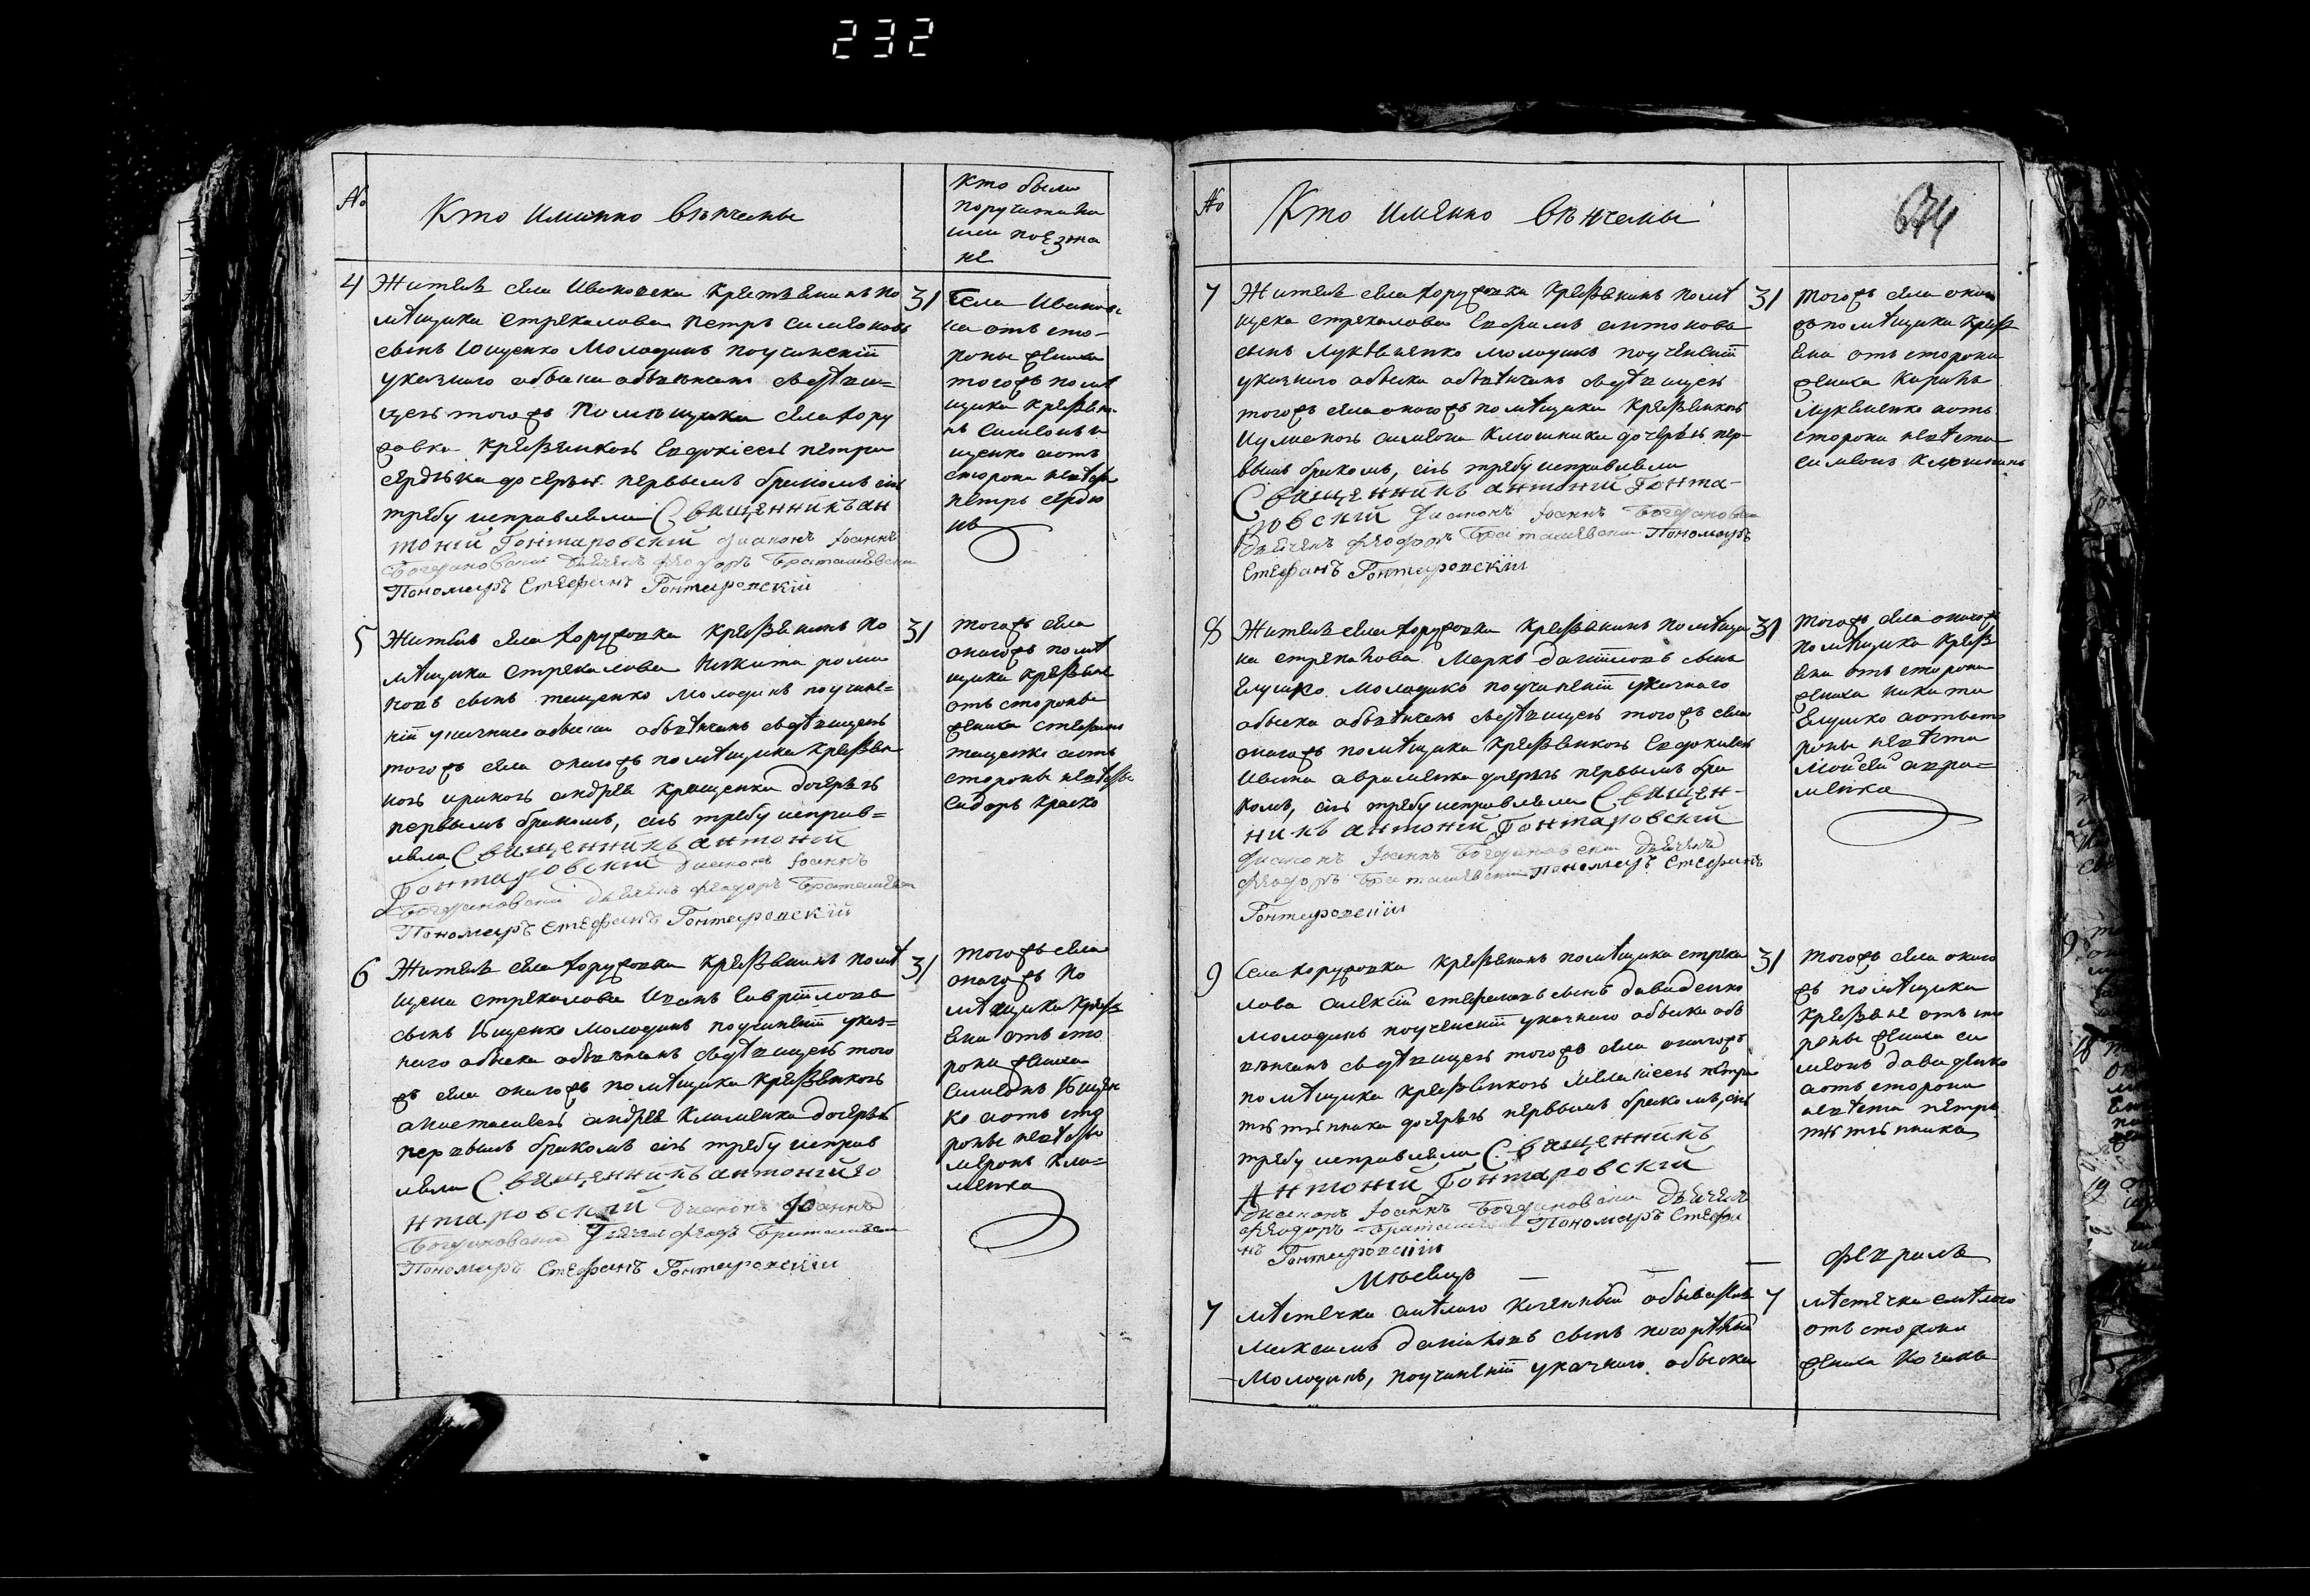 232
№
Кто именно венчаны
Кто были
поручители
или поезжа
не
4 Житель села Ивановки крестьянинъ по 31
мѣщика Стрекалова Петръ Симеоновъ
сынъ Ющенко молодикъ поучиненій
указного обыска обвѣнчанъ здѣвицею
тогожъ помѣщика села хору
жовки крестьянкою Евдокіею Петра
Сердюка дочерью первымъ бракомъ сію
требу исправляли Священникъ ан
тоній Гонтаровскій Диаконъ Іоаннъ
Богдановскій Дьячекъ Феодоръ Браташевски
Пономаръ Стефанъ Гонтаровскій
Села Иванов
ки отъ сто-
роны жениха
тогожъ помѣ
щика крестьяни
нъ Симеонъ Ю
щенко аотъ
стороны невѣсты
Петръ Сердю
къ
5 Житель села хоружовки крестьянинъ по 31
мѣщика Стрекалова Никита рома
новъ сынъ тещенко молодикъ поучине=
ній указного обыска обвѣнчанъ здѣвицею
тогожъ села оногожъ помѣщика крестьян
кою ириною андрея Кращенка дочерью
первымъ бракомъ, сію требу исправ=
ляли Священникъ антоній
Гонтаровскій Диаконъ Іоаннъ
Богдановскій Дьячекъ Феодоръ Браташевски
Пономаръ Стефанъ Гонтаровскій
тогожъ села
оногожъ помѣ
щика крестьяне
отъ стороны
жениха Стефанъ
тещенко аотъ
стороны невѣсты
Сидоръ Краско
6 Житель села хоружовки крестьянинъ помѣ 31
щика Стрекалова Иванъ Гаврііловъ
сынъ Ющенко молодикъ поучиненій указ=
ного обыска обвѣнчанъ здѣвицею того
жъ села оногожъ помѣщика крестьянкою
анастасиею андрея Клименка дочерью
первымъ бракомъ сію требу исправ
ляли Священникъ антоній го
нтаровскій Диаконъ Іоаннъ
Богдановскій Дьячекъ Феодръ Браташевски
Пономаръ Стефанъ Гонтаровскій
тогожъ села
оногожъ по
мѣщика крестья
ни отъ сто
роны жениха
Симеонъ Ющен
ко аотъ сто
роны невѣсты
миронъ Кли=
менко
№
Кто именно венчаны
674
7 Житель села хоружовки крестьянинъ помѣ 31
щика Стрекалова Евфимъ антоновъ
сынъ Лукьяненко молодикъ поучиненій
указного обыска обвѣнчанъ здѣвицею
тогожъ села оногожъ помѣщика крестьянкою
Иулианою Симеона Ключника дочерью пер-
вымъ бракомъ, сію требу исправляли
Священникъ антоній Гонта-
ровскій Диаконъ Іоаннъ Богдановски
Дьячекъ Феодоръ Браташевски Пономаръ
Стефанъ Гонтаровскій
тогожъ села оного
жъ помѣщика крестья
ени отъ стороны
жениха Кирилъ
аотъ
стороны невѣсты
Симеонъ Ключникъ
8 Житель села хоружовки крестьянинъ помѣщи 31
ка Стрекалова Маркъ Даніиловъ сынъ
Глушко молодико поучиненій указного
обыска обвѣнчанъ здѣвицею тогожъ села
оногожъ помѣщика крестьянкою Евдокиею
Ивана авраменка дочерью первымъ бра
комъ, сію требу исправляли Священ-
никъ антоній Гонтаровскій
Диаконъ Іоаннъ Богдановски Дьячекъ
Феодоръ Браташевски Пономаръ Стефанъ
Гонтаровскій
тогожъ села оногожъ
помѣщика крестья
ени отъ стороны
жениха Никита
Глушко аотъ сто
роны невѣсты
Моисей авра=
менко
9 Села хоружовки крестьянинъ помѣщика Стрека 31
лова алексій Стефановъ сынъ Давиденко
молодикъ поучиненій указного обыска обв
ѣнчанъ здѣвицею тогожъ села оногожъ
помѣщика крестьянкою Меланиею Петра
дочерью первымъ бракомъ, сію
требу исправляли Священникъ
Антоній Гонтаровскій
Диаконъ Іоаннъ Богдановски Дьячекъ
Феодоръ Браташевски Пономаръ Стефа
нъ Гонтаровскій
тогожъ села оного
жъ помѣщика
крестьяне отъ сто
роны жениха Си
меонъ Давиденко
аотъ стороны
невѣсты Петръ
Мѣсецъ — — — Февраль
7 мѣстечка Смѣлого казенный обыватель 7
Максимъ Даніиловъ сынъ погорѣлый
молодикъ, поучиненій указного обыска
мѣстечка Смѣлого
отъ стороны
жениха